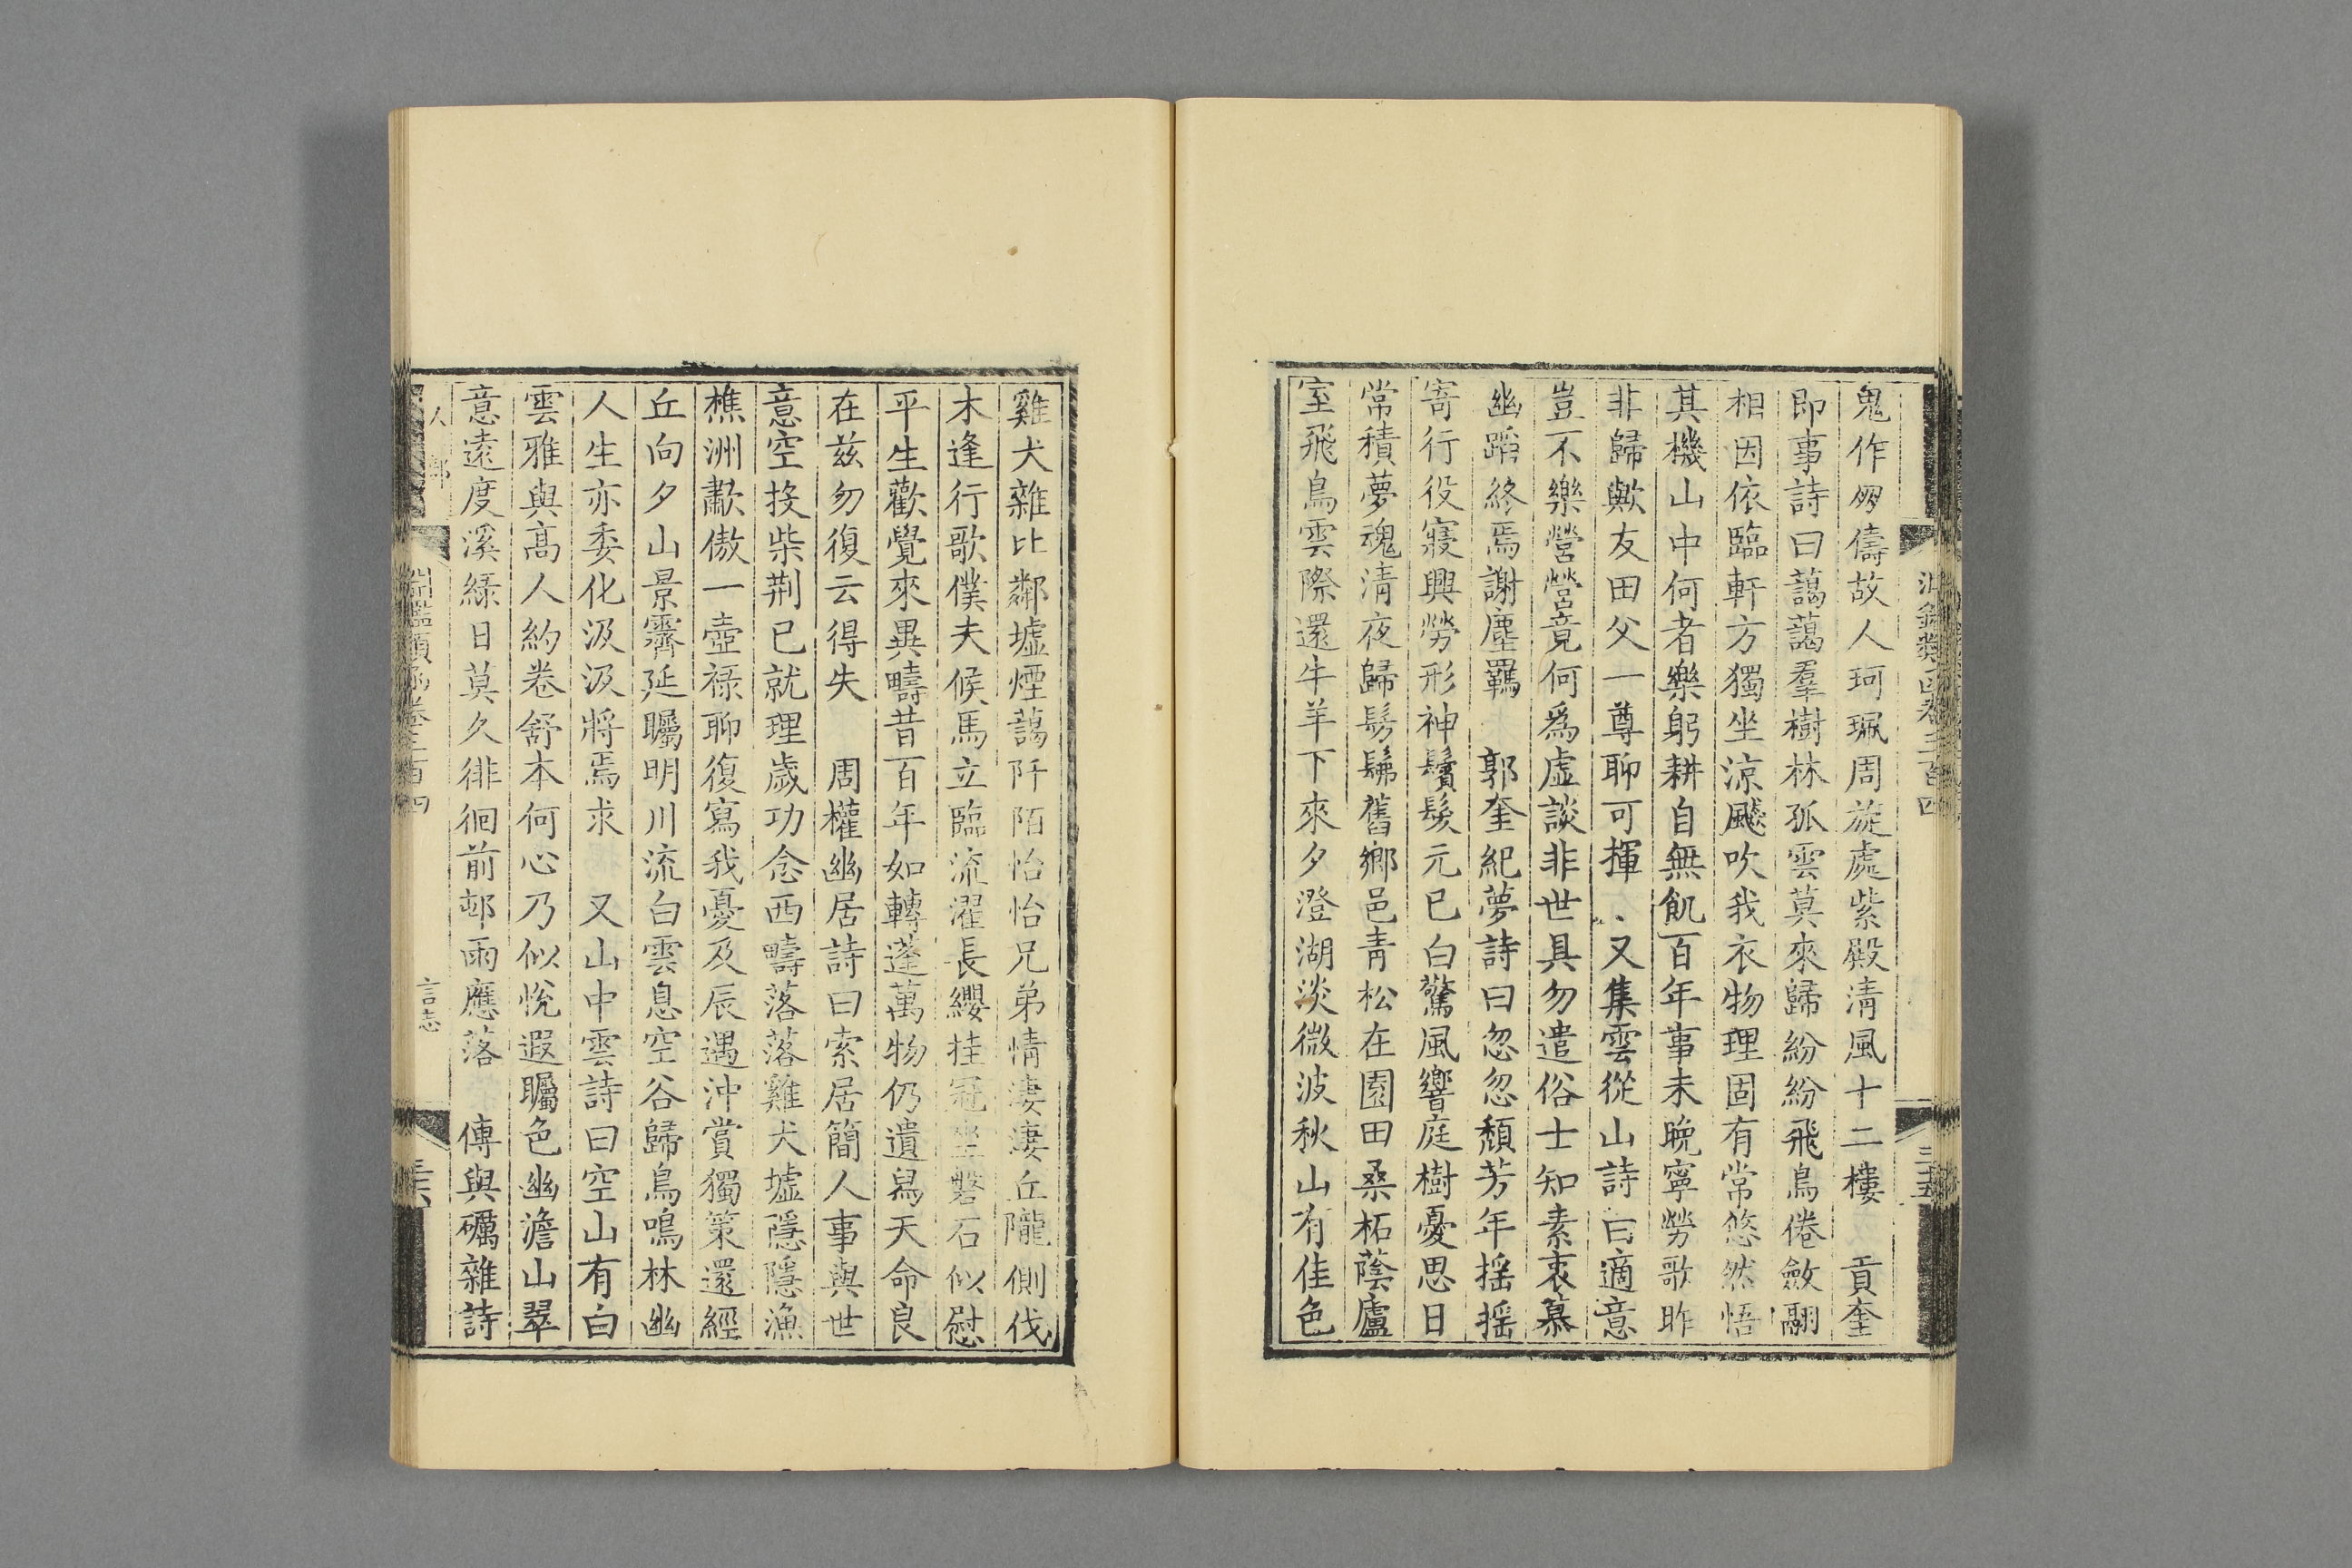 鬼作朋儔故人珂珮周旋處紫殿淸風十二樓　貢奎
即事詩曰藹藹羣樹林孤雲莫來歸紛紛飛鳥倦斂翮
相因依臨軒方獨坐涼飈吹我衣物理固有常悠然悟
其機山中何者樂躬耕自無飢百年事未晚寧勞歌昨
非歸歟友田父一尊聊可揮　又集雲從山詩曰適意
豈不樂營營竟何爲虛談非世具勿遣俗士知素衷慕
幽蹈終焉謝塵羈　郭奎紀夢詩曰忽忽頹芳年搖搖
寄行役寢興勞形神鬢髮元已白驚風響庭樹憂思日
常積夢魂淸夜歸髣髴舊鄉邑靑松在園田桑柘蔭廬
室飛鳥雲際還牛羊下來夕澄湖淡微波秋山有佳色
雞犬雜比鄰墟煙藹阡陌怡怡兄弟情淒淒丘隴側伐
木逢行歌僕夫候馬立臨流濯長纓挂冠坐磐石似慰
平生歡覺來異疇昔百年如轉蓬萬物仍遺舄天命良
在茲勿復云得失　周權幽居詩曰索居簡人事與世
意空投柴荆已就理歲功念西疇落落雞犬墟隱隱漁
樵洲歗傲一壺祿聊復寫我憂及辰遇沖賞獨策還經
丘向夕山景霽延矚明川流白雲息空谷歸鳥鳴林幽
人生亦委化汲汲將焉求　又山中雲詩曰空山有白
雲雅與高人約卷舒本何心乃似悅遐矚色幽澹山翠
意遠度溪綠日莫久徘徊前邨雨應落　傅與礪雜詩
淵鑑類函卷三百四
言志
三十六